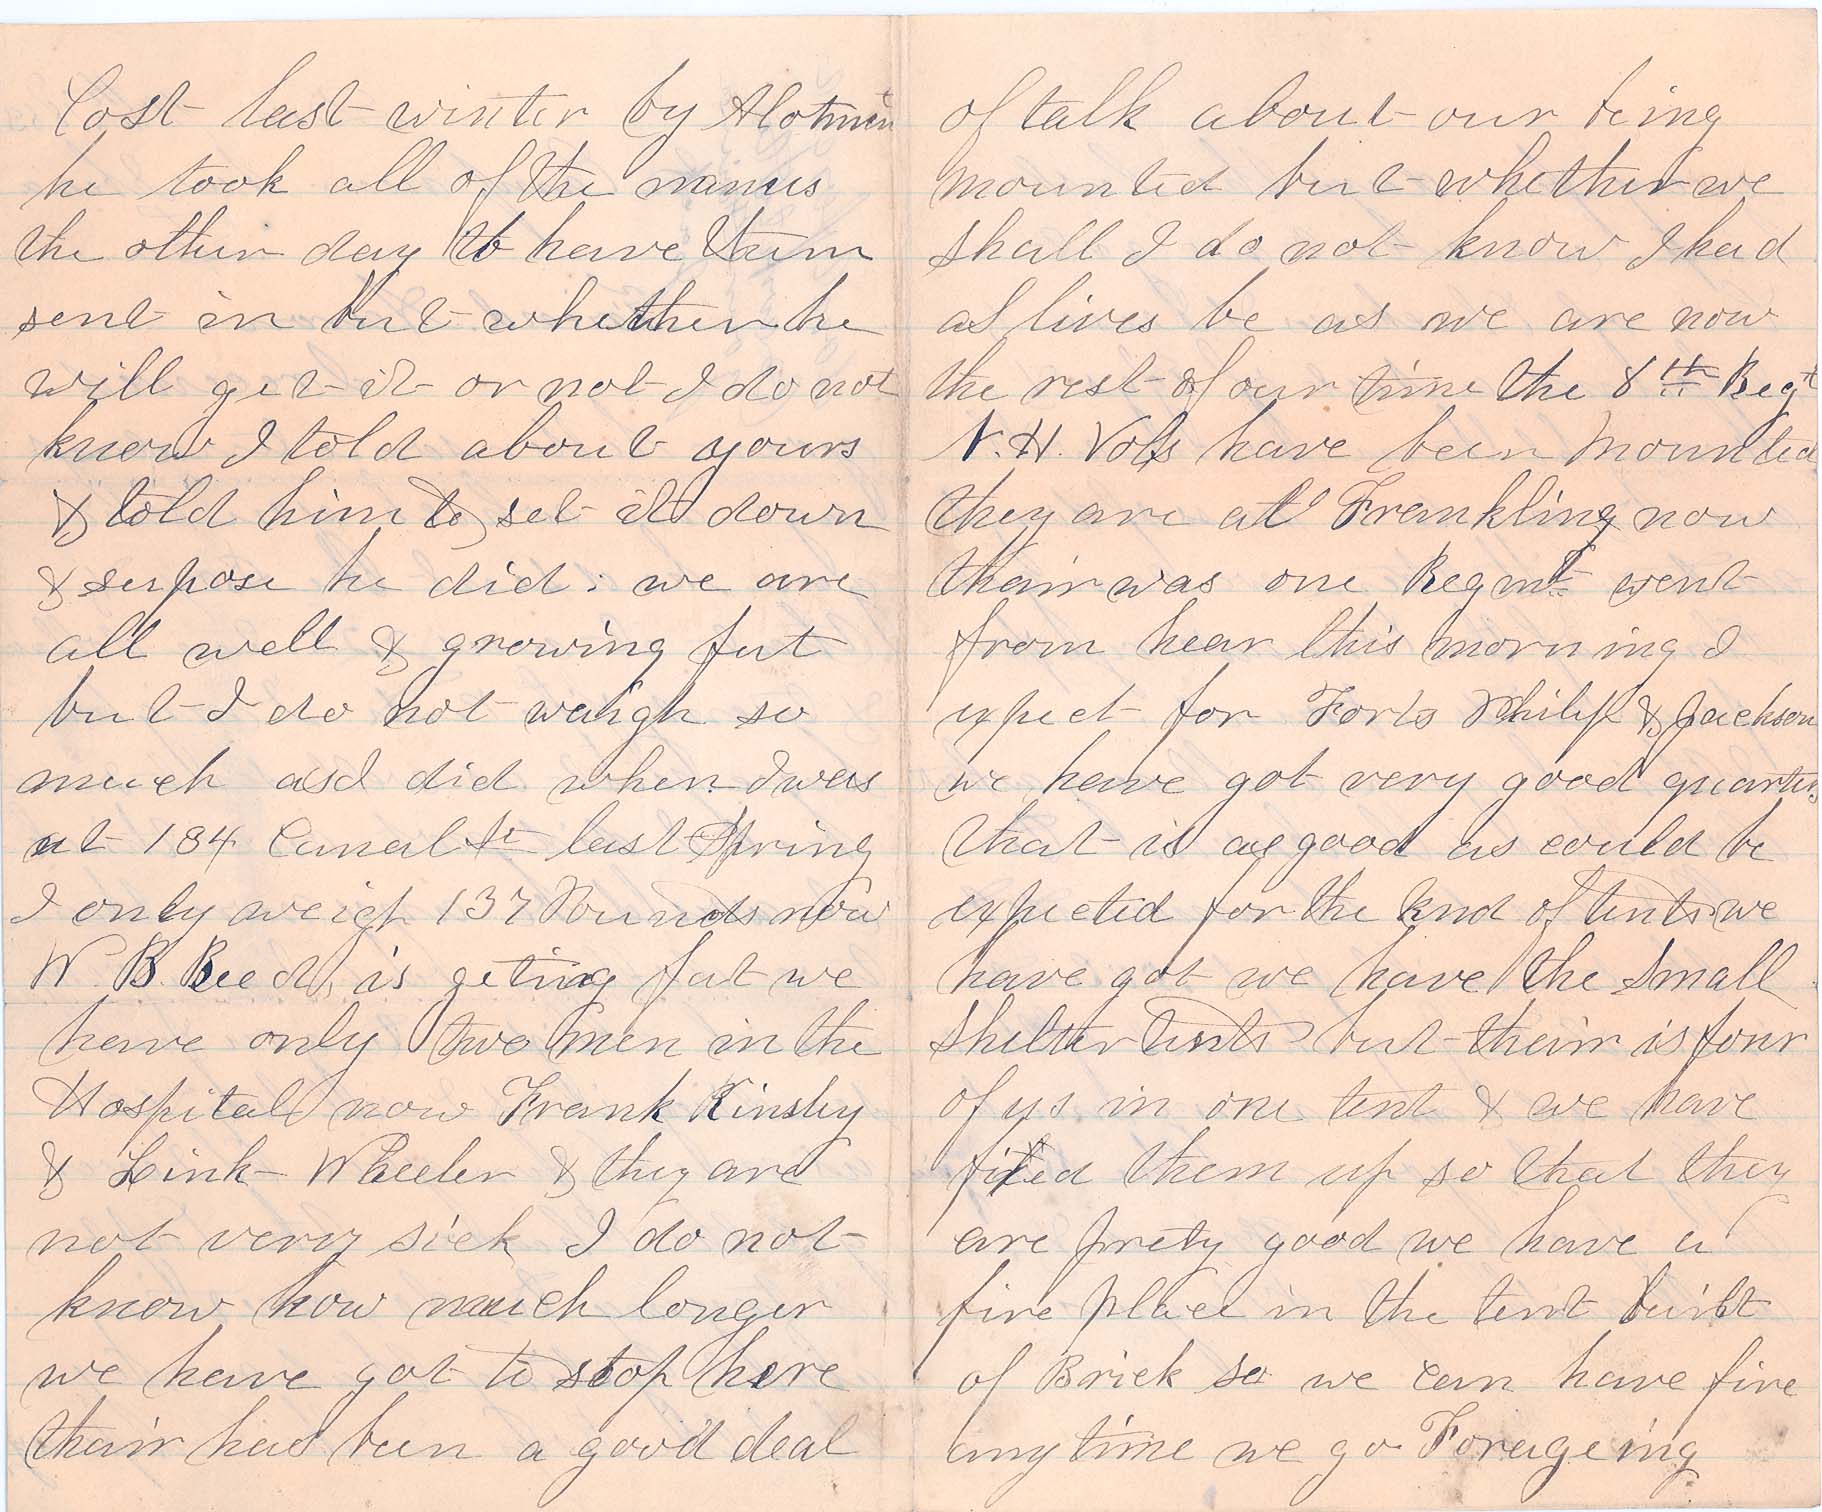 Lost last winter by Alotment
he took all of the names
the other day to have them
sent in but whether he
will get it or not I do not
know I told about yours
& told him to set it down
& supose he did : we are
all well & growing fat
but I do not waigh so
much as I did when I was
at 184 Canal St last Spring
I only weigh 137 Pounds now
W. B. Reed, is geting fat we
have only two men in the
Hospital now Frank Kinsley
& Link Wheeler & they are
not very sick I do not
know how much longer
we have got to stop here
thair has been a good deal
of talk about our being
mounted but whether we
shall I do not know I had
as lives be as we are now
the rest of our time the 8th Regt
N. H. Vols have been mounted
they are at Frankling now
thair was one Regmt went
from hear this morning I
expect for Forts Philip & Jackson
we have got very good quarters
that is as good as could be
expected for the knd of tents we
have got we have the small
shelter tents but thair is four
of us in one tent & we have
fixed them up so that they
are prety good we have a
fire place in the tent built
of Brick so we can have fire
any time we go Forageing